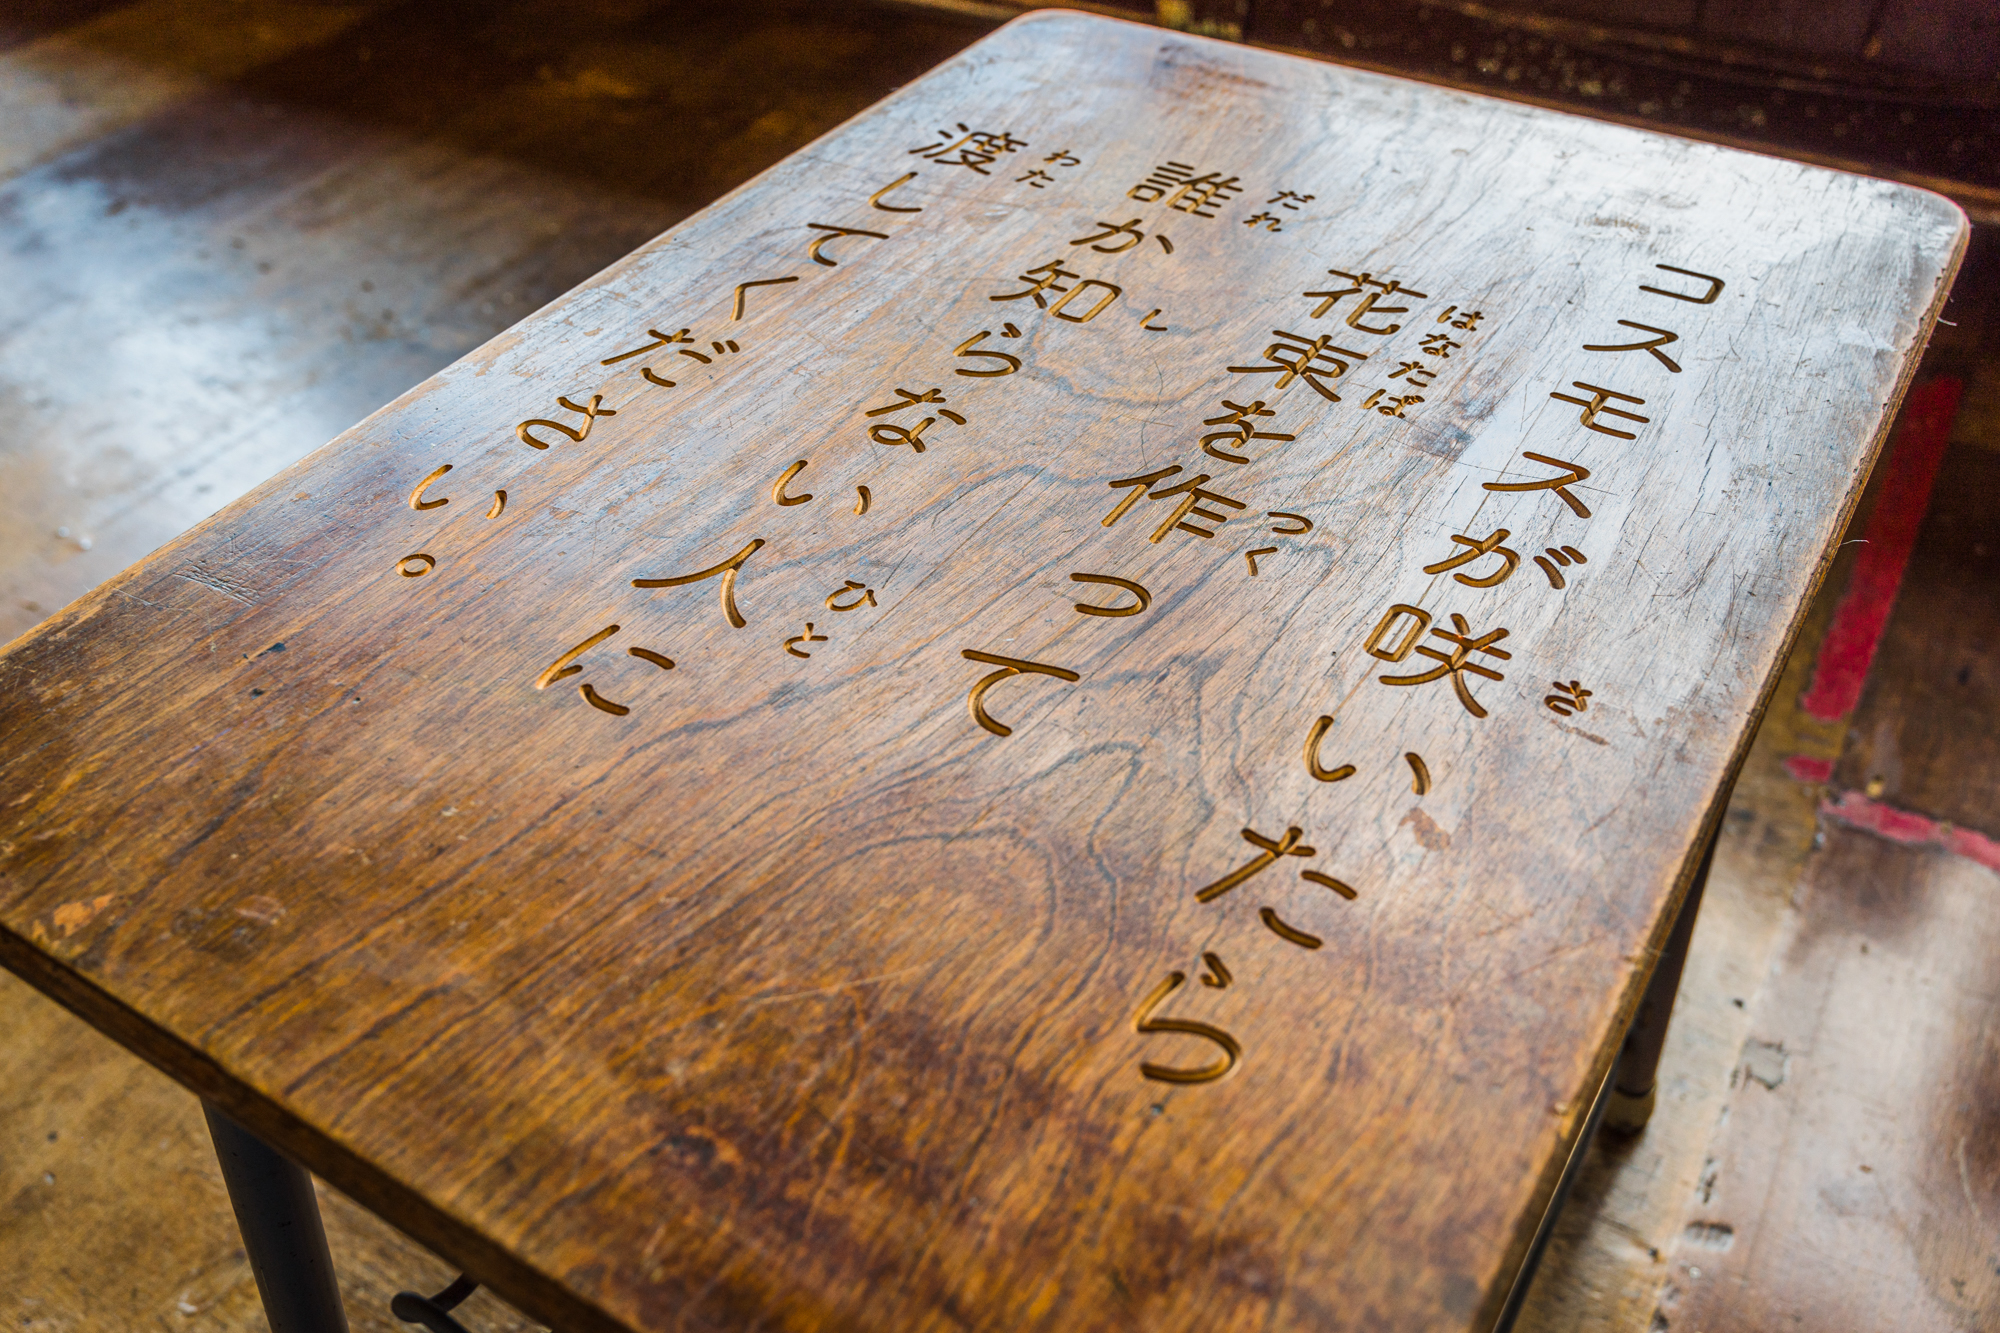 コスモスが咲いたら
花束を作って
誰か知らない人に
渡してください。
さ
はなたば
つく
だれ
し
ひと
わた